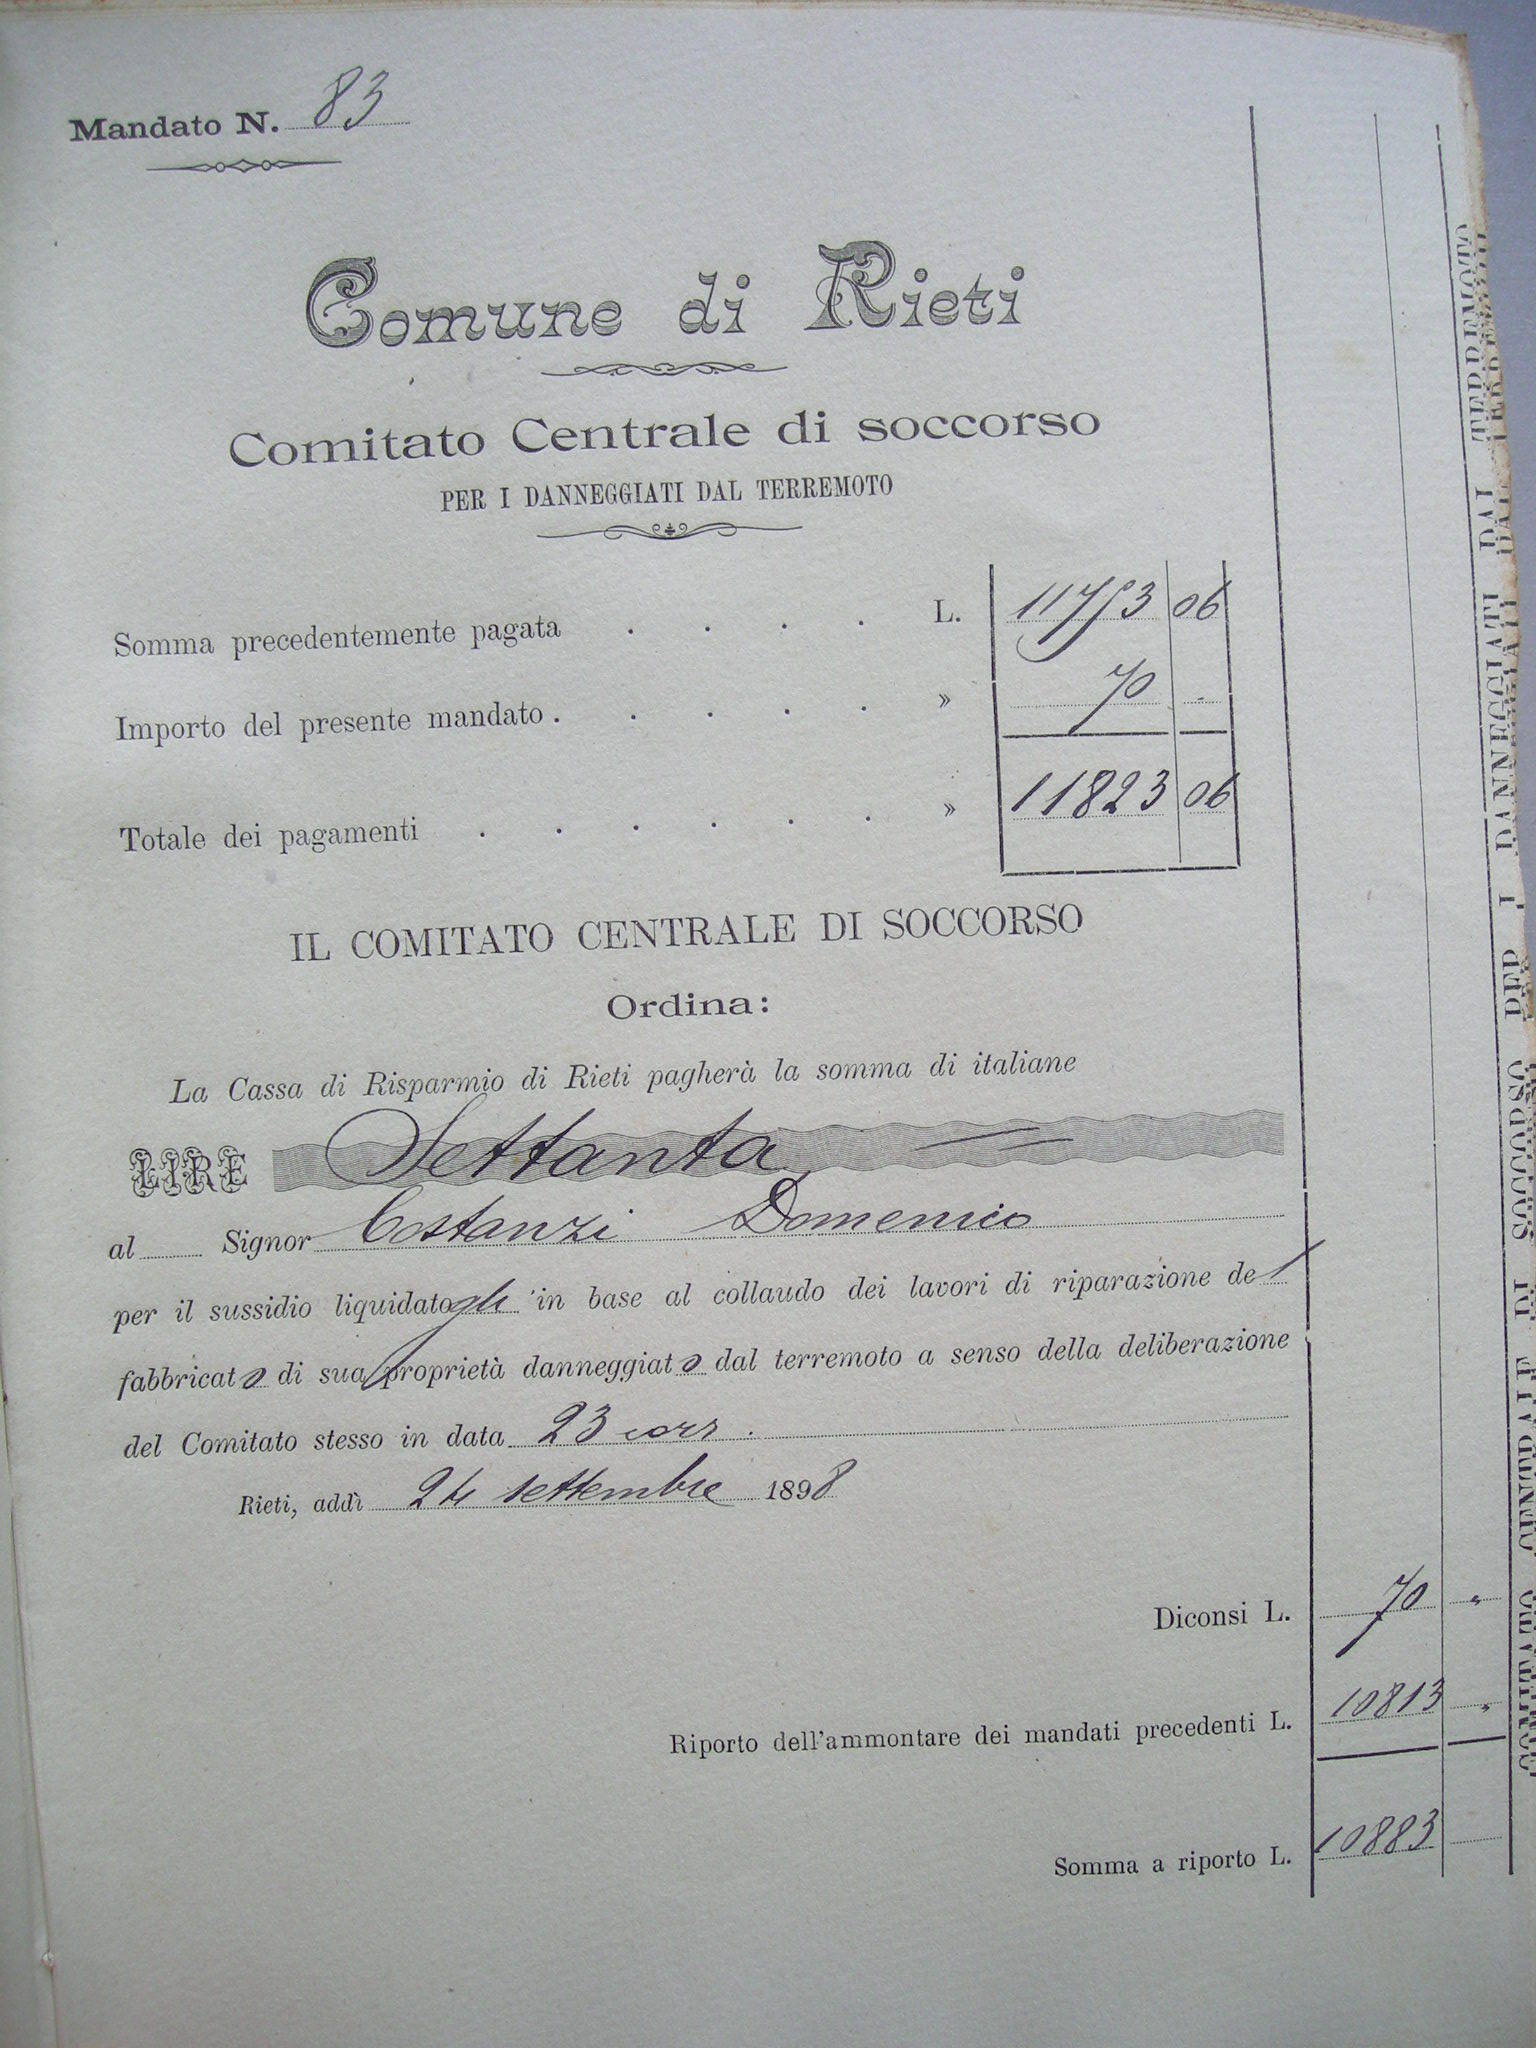 Mandato N. 83
Comune di Rieti
Comitato Centrale di soccorso
PER I DANNEGGIATI DAL TERREMOTO
Somma precedentemente pagata . . . . L. 11753 06
Importo del presente mandato . . . . . » 70 -
Totale dei pagamenti . . . . . . » 11823 06
IL COMITATO CENTRALE DI SOCCORSO
Ordina:
La Cassa di Risparmio di Rieti pagherà la somma di italiane
LIRE Settanta
al Signor Costanzi Domenico
per il sussidio liquidatogli in base al collaudo dei lavori di riparazione del
fabbricato di sua proprietà danneggiato dal terremoto a senso della deliberazione
del Comitato stesso in data 23 corr.
Rieti, addì 24 settembre 1898
Diconsi L. 70 "
Riporto dell'ammontare dei mandati precedenti L. 10813 "
Somma a riporto L. 10883
COMITATO CENTRALE DI SOCCORSO PER I DANNEGGIATI DAL TERREMOTO